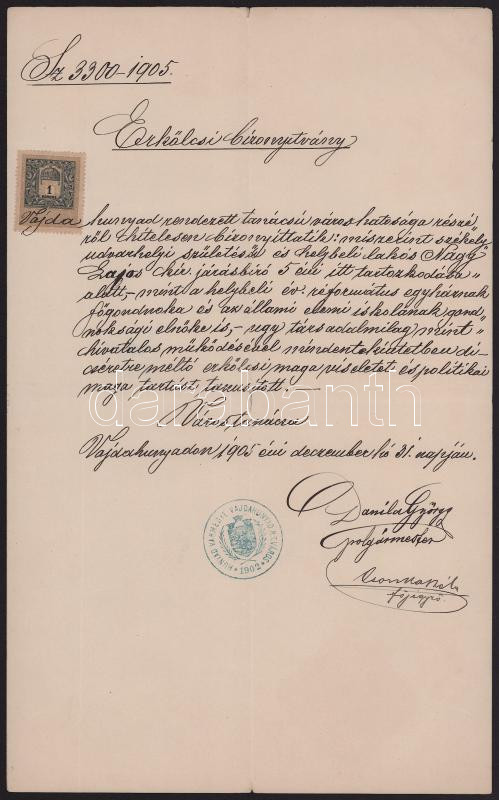 Sz 3300-1905.
Erkölcsi bizonyitvány
1
Vajda hunyad rendezett tanácsú város hatósága részé
ről hitelesen bizonyittatik: miszerint székely
udvarhelyi születésű és helybeli lakós Nagy
Lajos kir. járásbiró 5 évi itt tartózkodása
alatt,- mint a helybeli ev. református egyháznak
főgondnoka és az állami elemi iskolának gond
noksági elnöke is,- ugy társadalmilag mint
hivatalos működésével mindentekintetben di-
cséretre méltó erkölcsi maga viseletet és politikai
maga tartást tanusitott.-
Városi tanácsa
Vajdahunyadon 1905 évi deczember hó 31. napján.
darabanth
HUNYAD VÁRMEGYE VAJDAHUNYAD R.T. VÁROS
1902
Danila György
polgármester
főjegyző